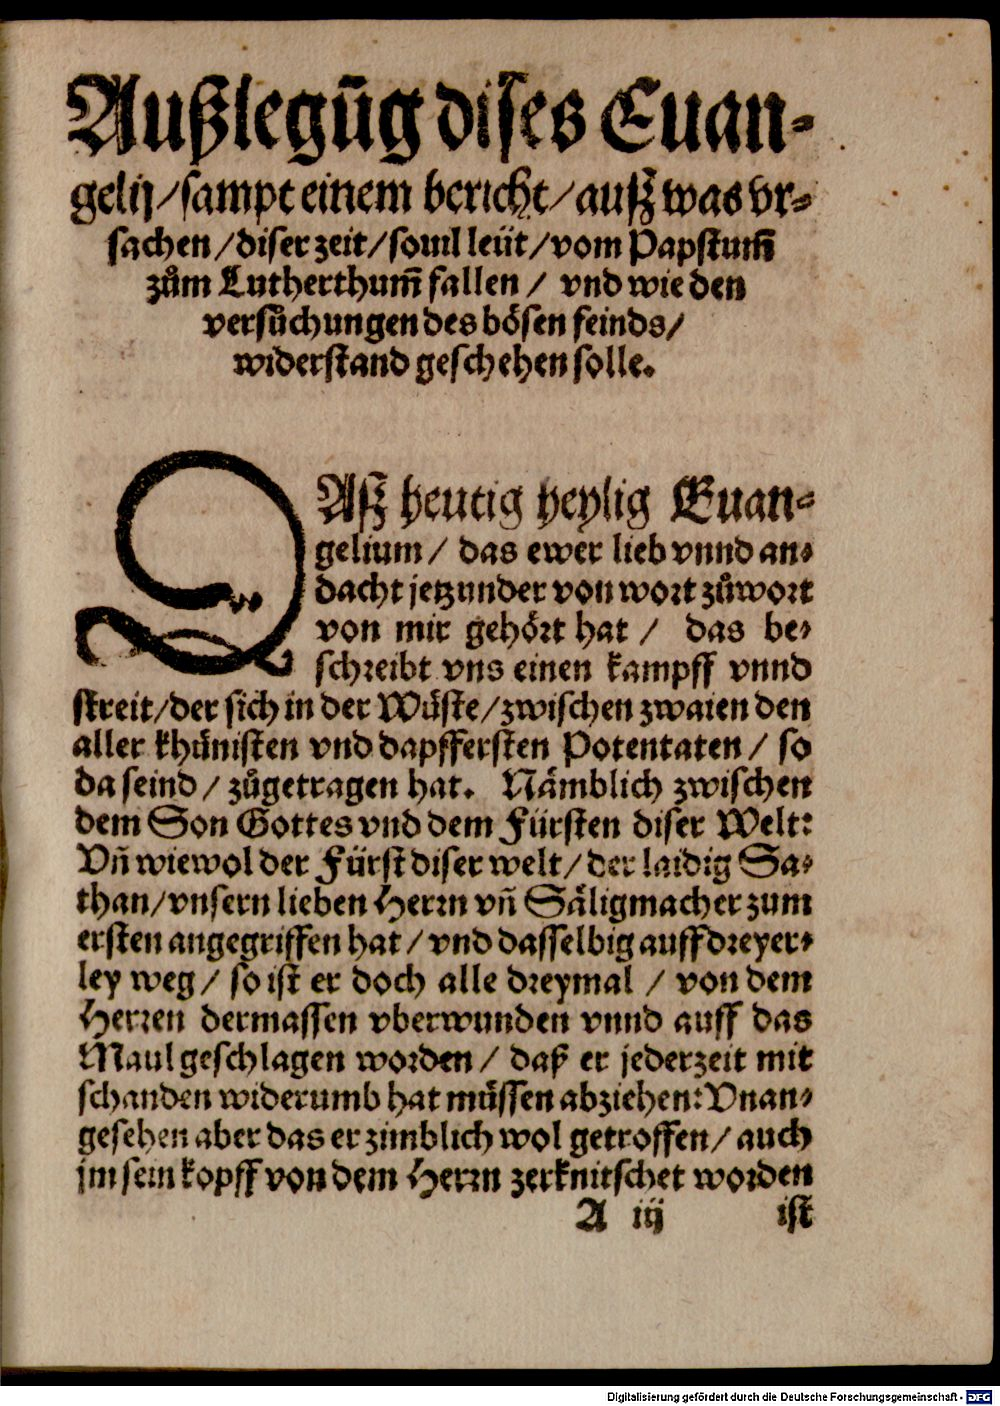 Außlegũg dises Euan-
gelij/sampt einem bericht/auß was vr-
sachen/diser zeit/souil leüt/vom Papstum̃
zům Lutherthum̃ fallen / vnd wie den
versůchungen des bösen feinds/
widerstand geschehen solle.
DAß heutig heylig Euan-
gelium / das ewer lieb vnnd an-
dacht jetzunder von wort zůwort
von mir gehört hat / das be-
schreibt vns einen kampff vnnd
streit/der sich in der Wüste/zwischen zwaien den
aller khünisten vnd dapffersten Potentaten / so
da seind / zůgetragen hat. Nämblich zwischen
dem Son Gottes vnd dem Fürsten diser Welt:
Vñ wiewol der Fürst diser welt/der laidig Sa-
than/vnsern lieben Herrn vñ Säligmacher zum
ersten angegriffen hat/vnd dasselbig auff dreyer-
ley weg / so ist er doch alle dreymal / von dem
Herren dermassen vberwunden vnnd auff das
Maul geschlagen worden / daß er jederzeit mit
schanden widerumb hat müssen abziehen: Vnan-
gesehen aber das er zimblich wol getroffen/auch
jm sein kopff von dem Herrn zerknitschet worden
A iij ist
Digitalisierung gefördert durch die Deutsche Forschungsgemeinschaft - DFG